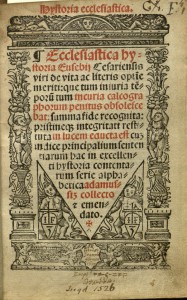 Hystoria ecclesiastica.
¶ Ecclesiastica hy-
storia Eusebij Cesariensis
viri de vita ac literis optime
meriti: que tum iniuria te-
porū tum incuria calcogra
phorum penitus obsolesce
bat: summa fide recognita:
pristineqz integritati resti-
tuta in lucem educta est cuz
indice principalium senten
tiarum hac in excellenti
hystoria contenta-
rum serie alpha-
betica adamus-
sim collecto
et emen-
dato.
Lugd 1526